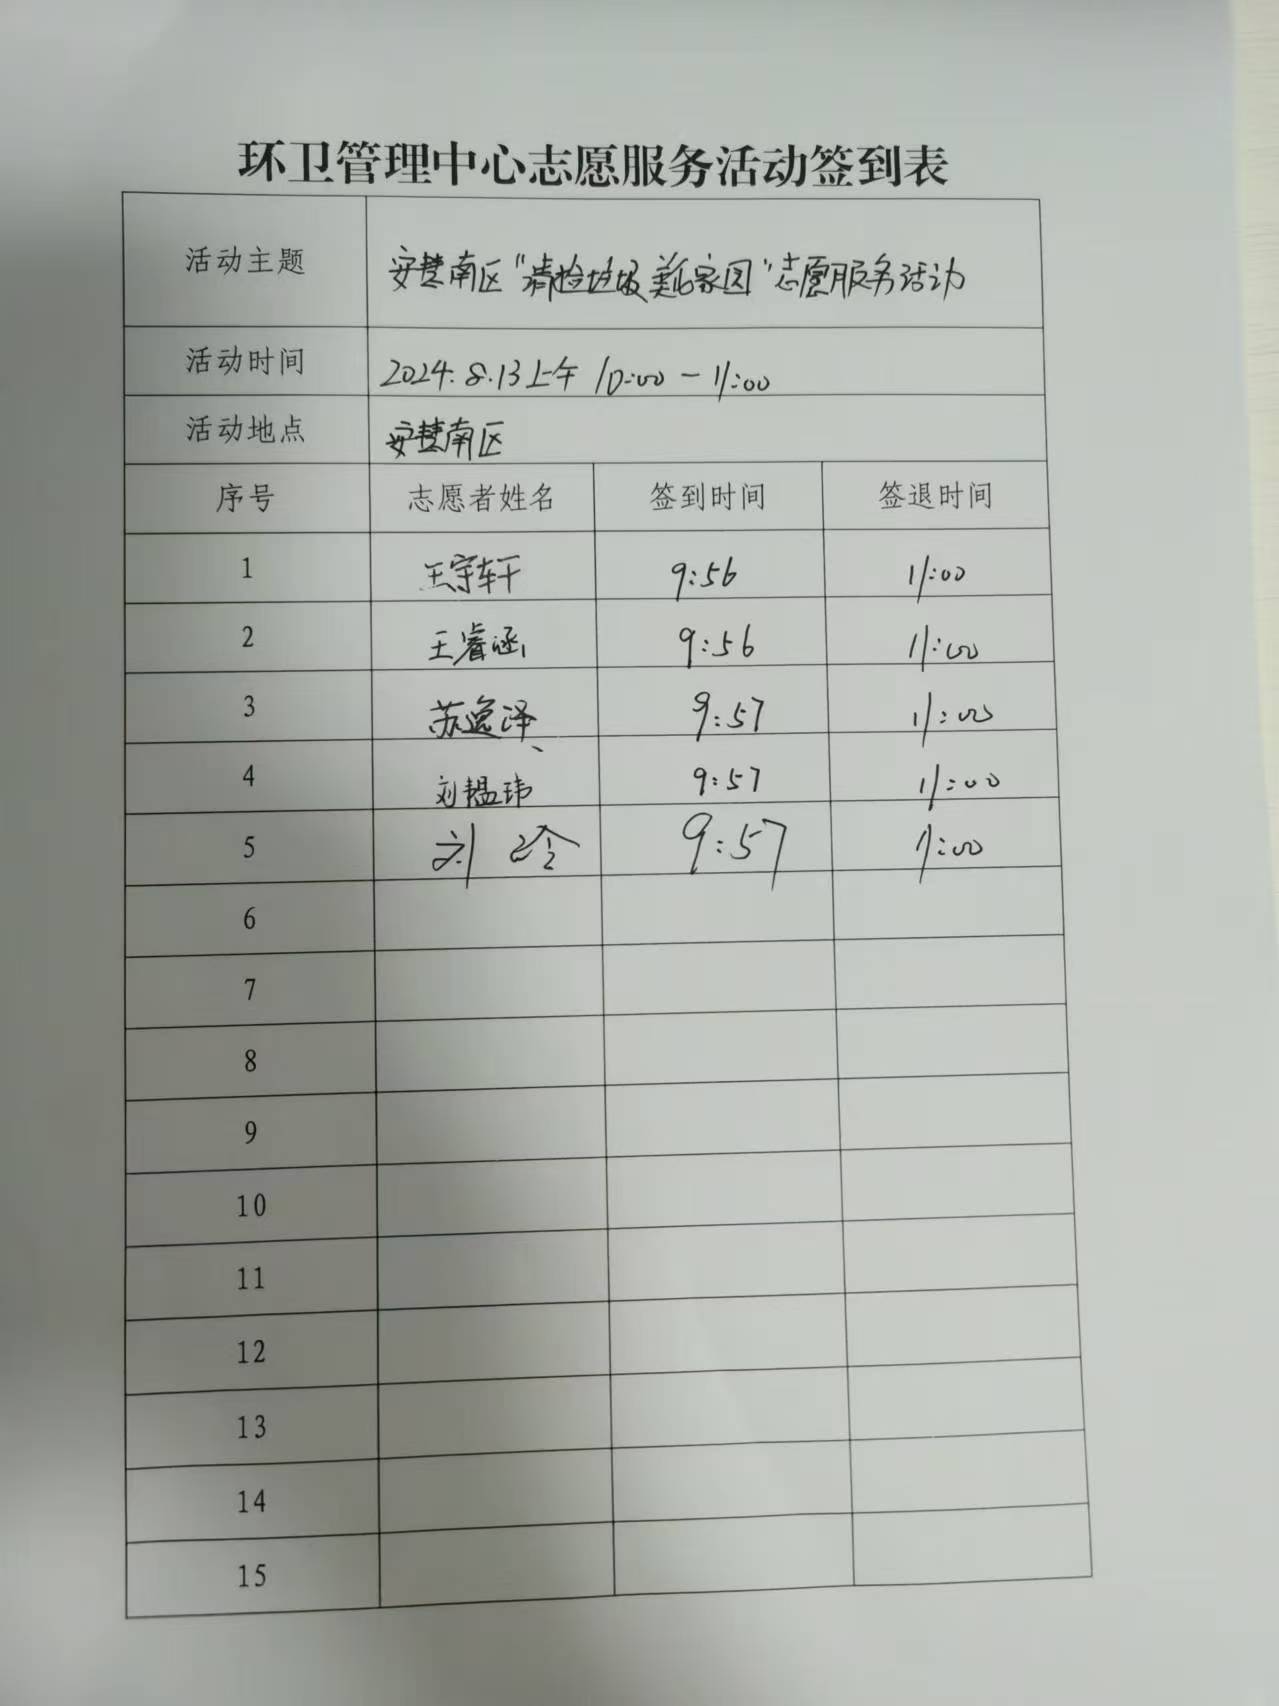 环卫管理中心志愿服务活动签到表
活动主题 安慧南区"清捡垃圾 美化家园"志愿服务活动
活动时间 2024.8.13上午 10:00-11:00
活动地点 安慧南区
序号 志愿者姓名 签到时间 签退时间
1 王宇轩 9:56 11:00
2 王睿涵 9:56 11:00
3 苏逸泽 9:57 11:00
4 刘韫玮 9:57 11:00
5 刘 9:57 11:00
6
7
8
9
10
11
12
13
14
15